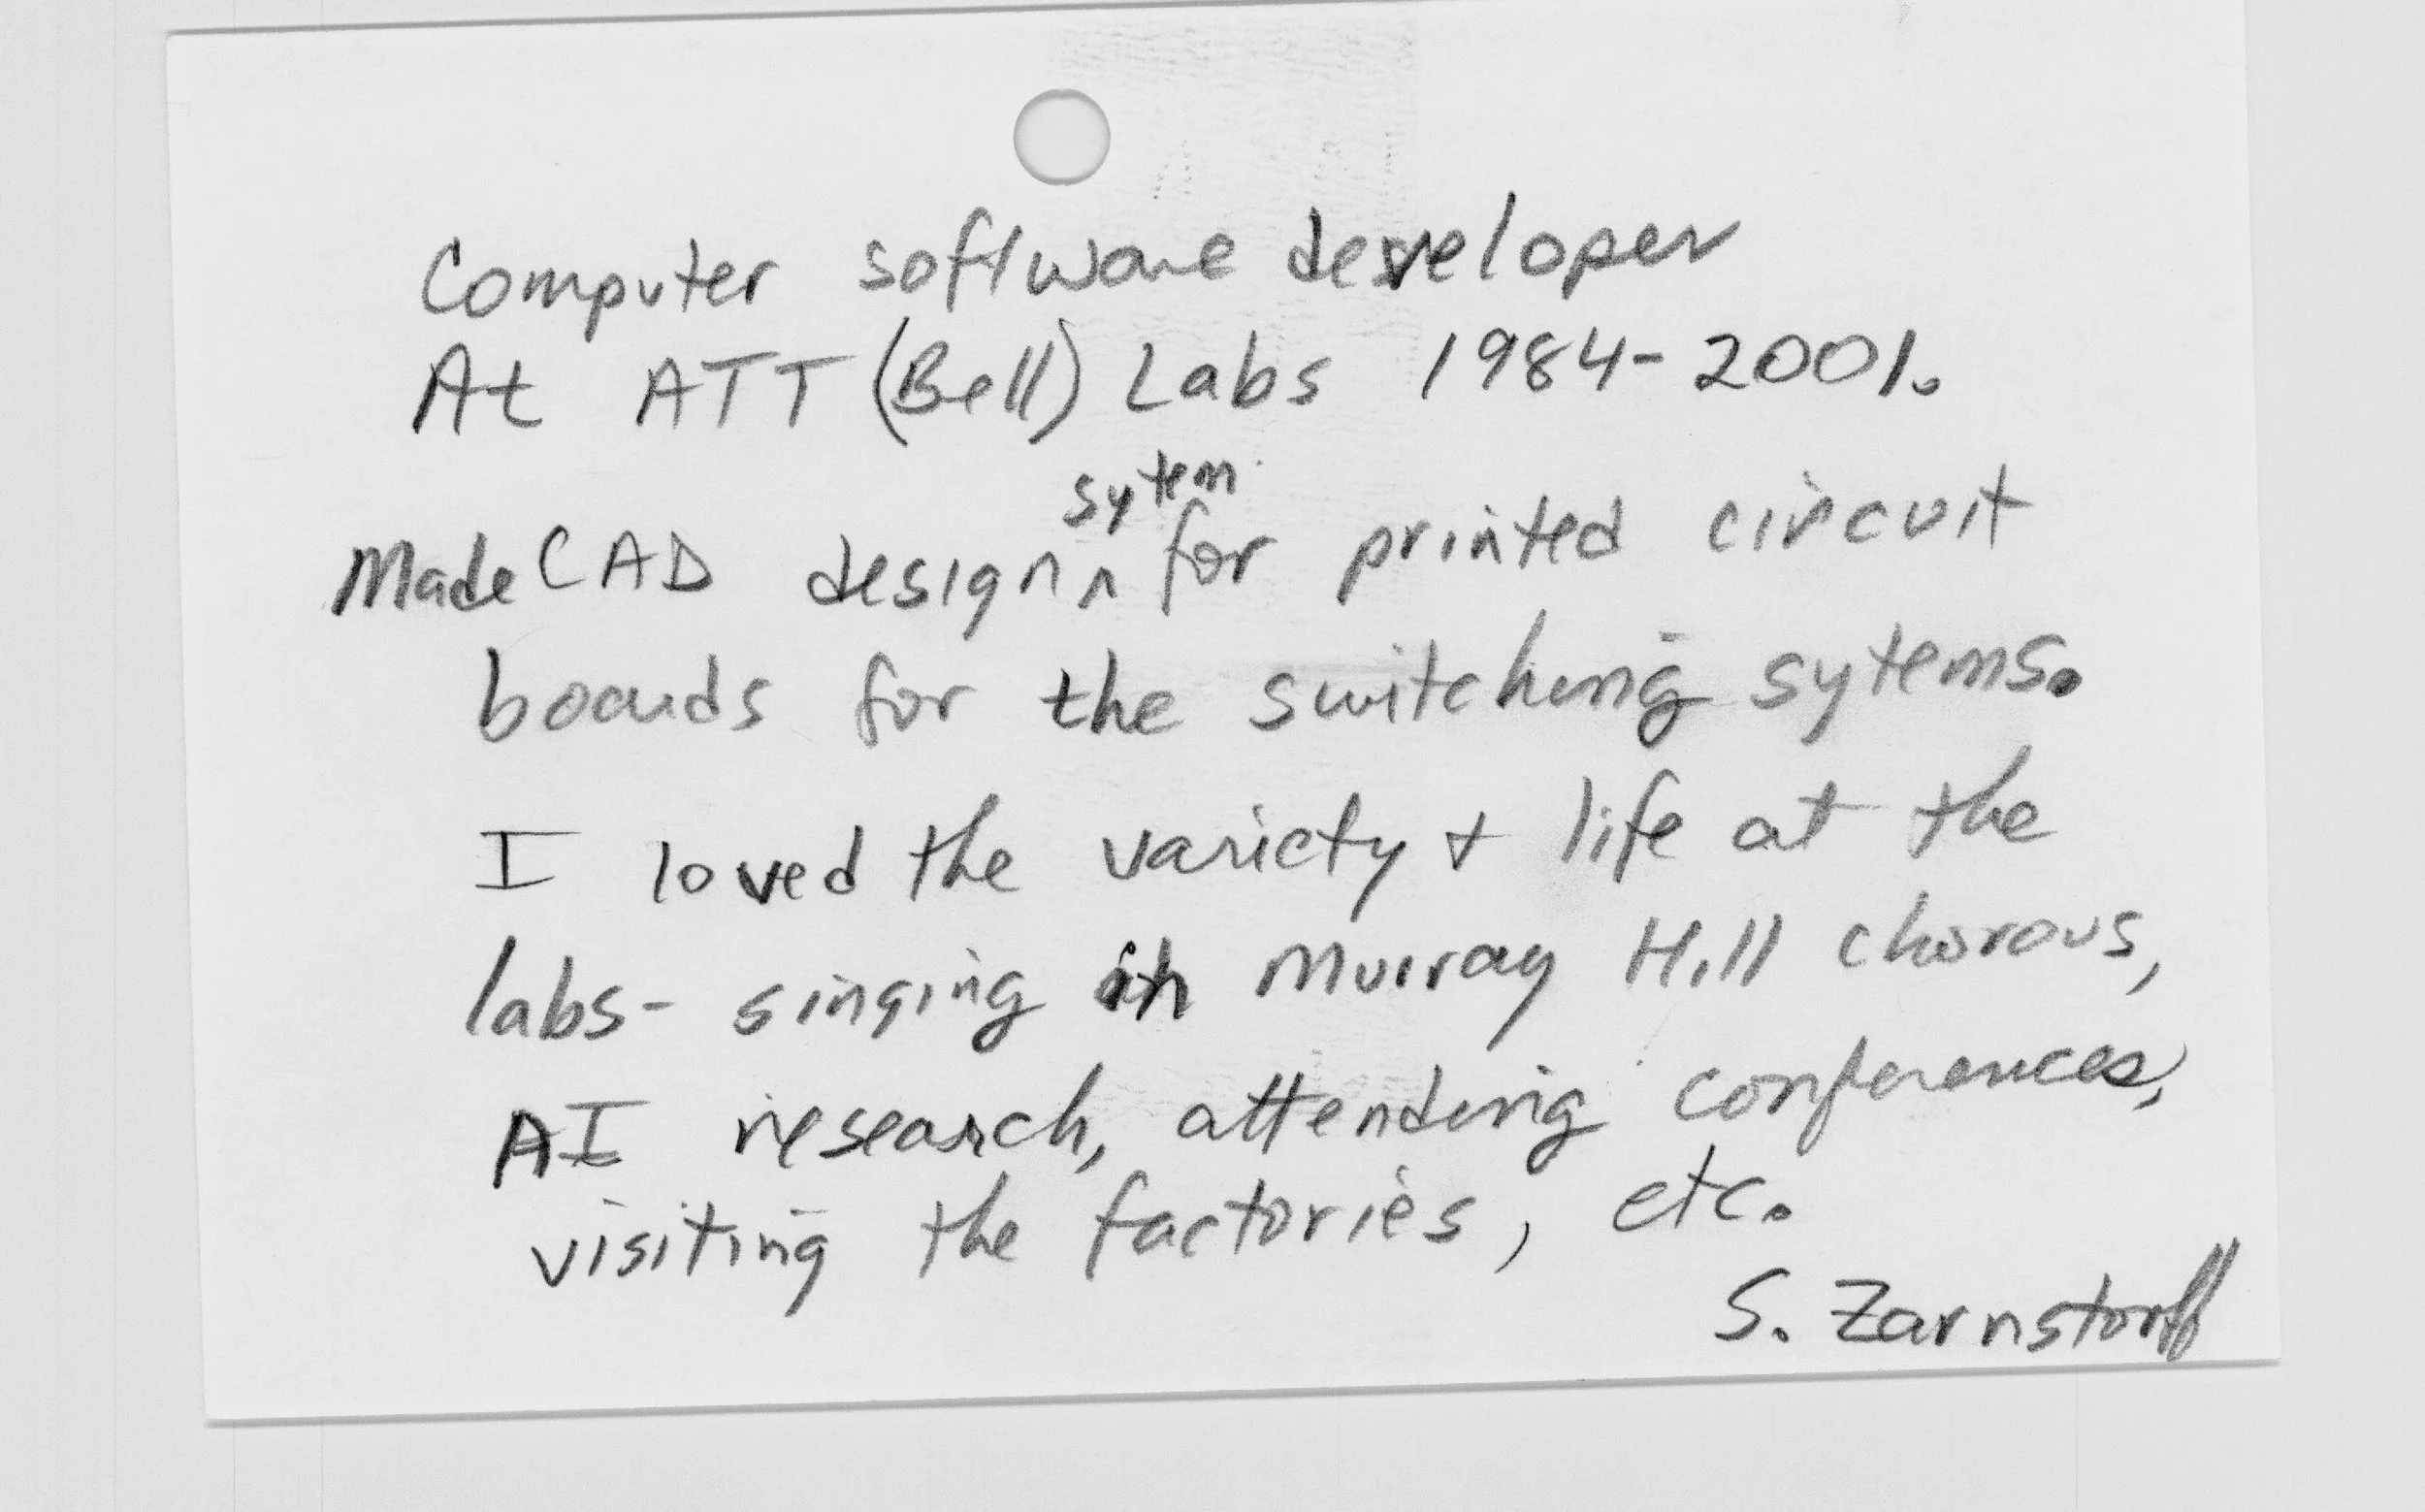 Computer software developer
At ATT (Bell) Labs 1984-2001.
sytem
Made CAD design ^ for printed circuit
boards for the switching sytems.
I loved the variety + life at the
labs- singing in Murray Hill chorous,
AI research, attending conferences,
visiting the factories, etc.
S. Zarnstorff